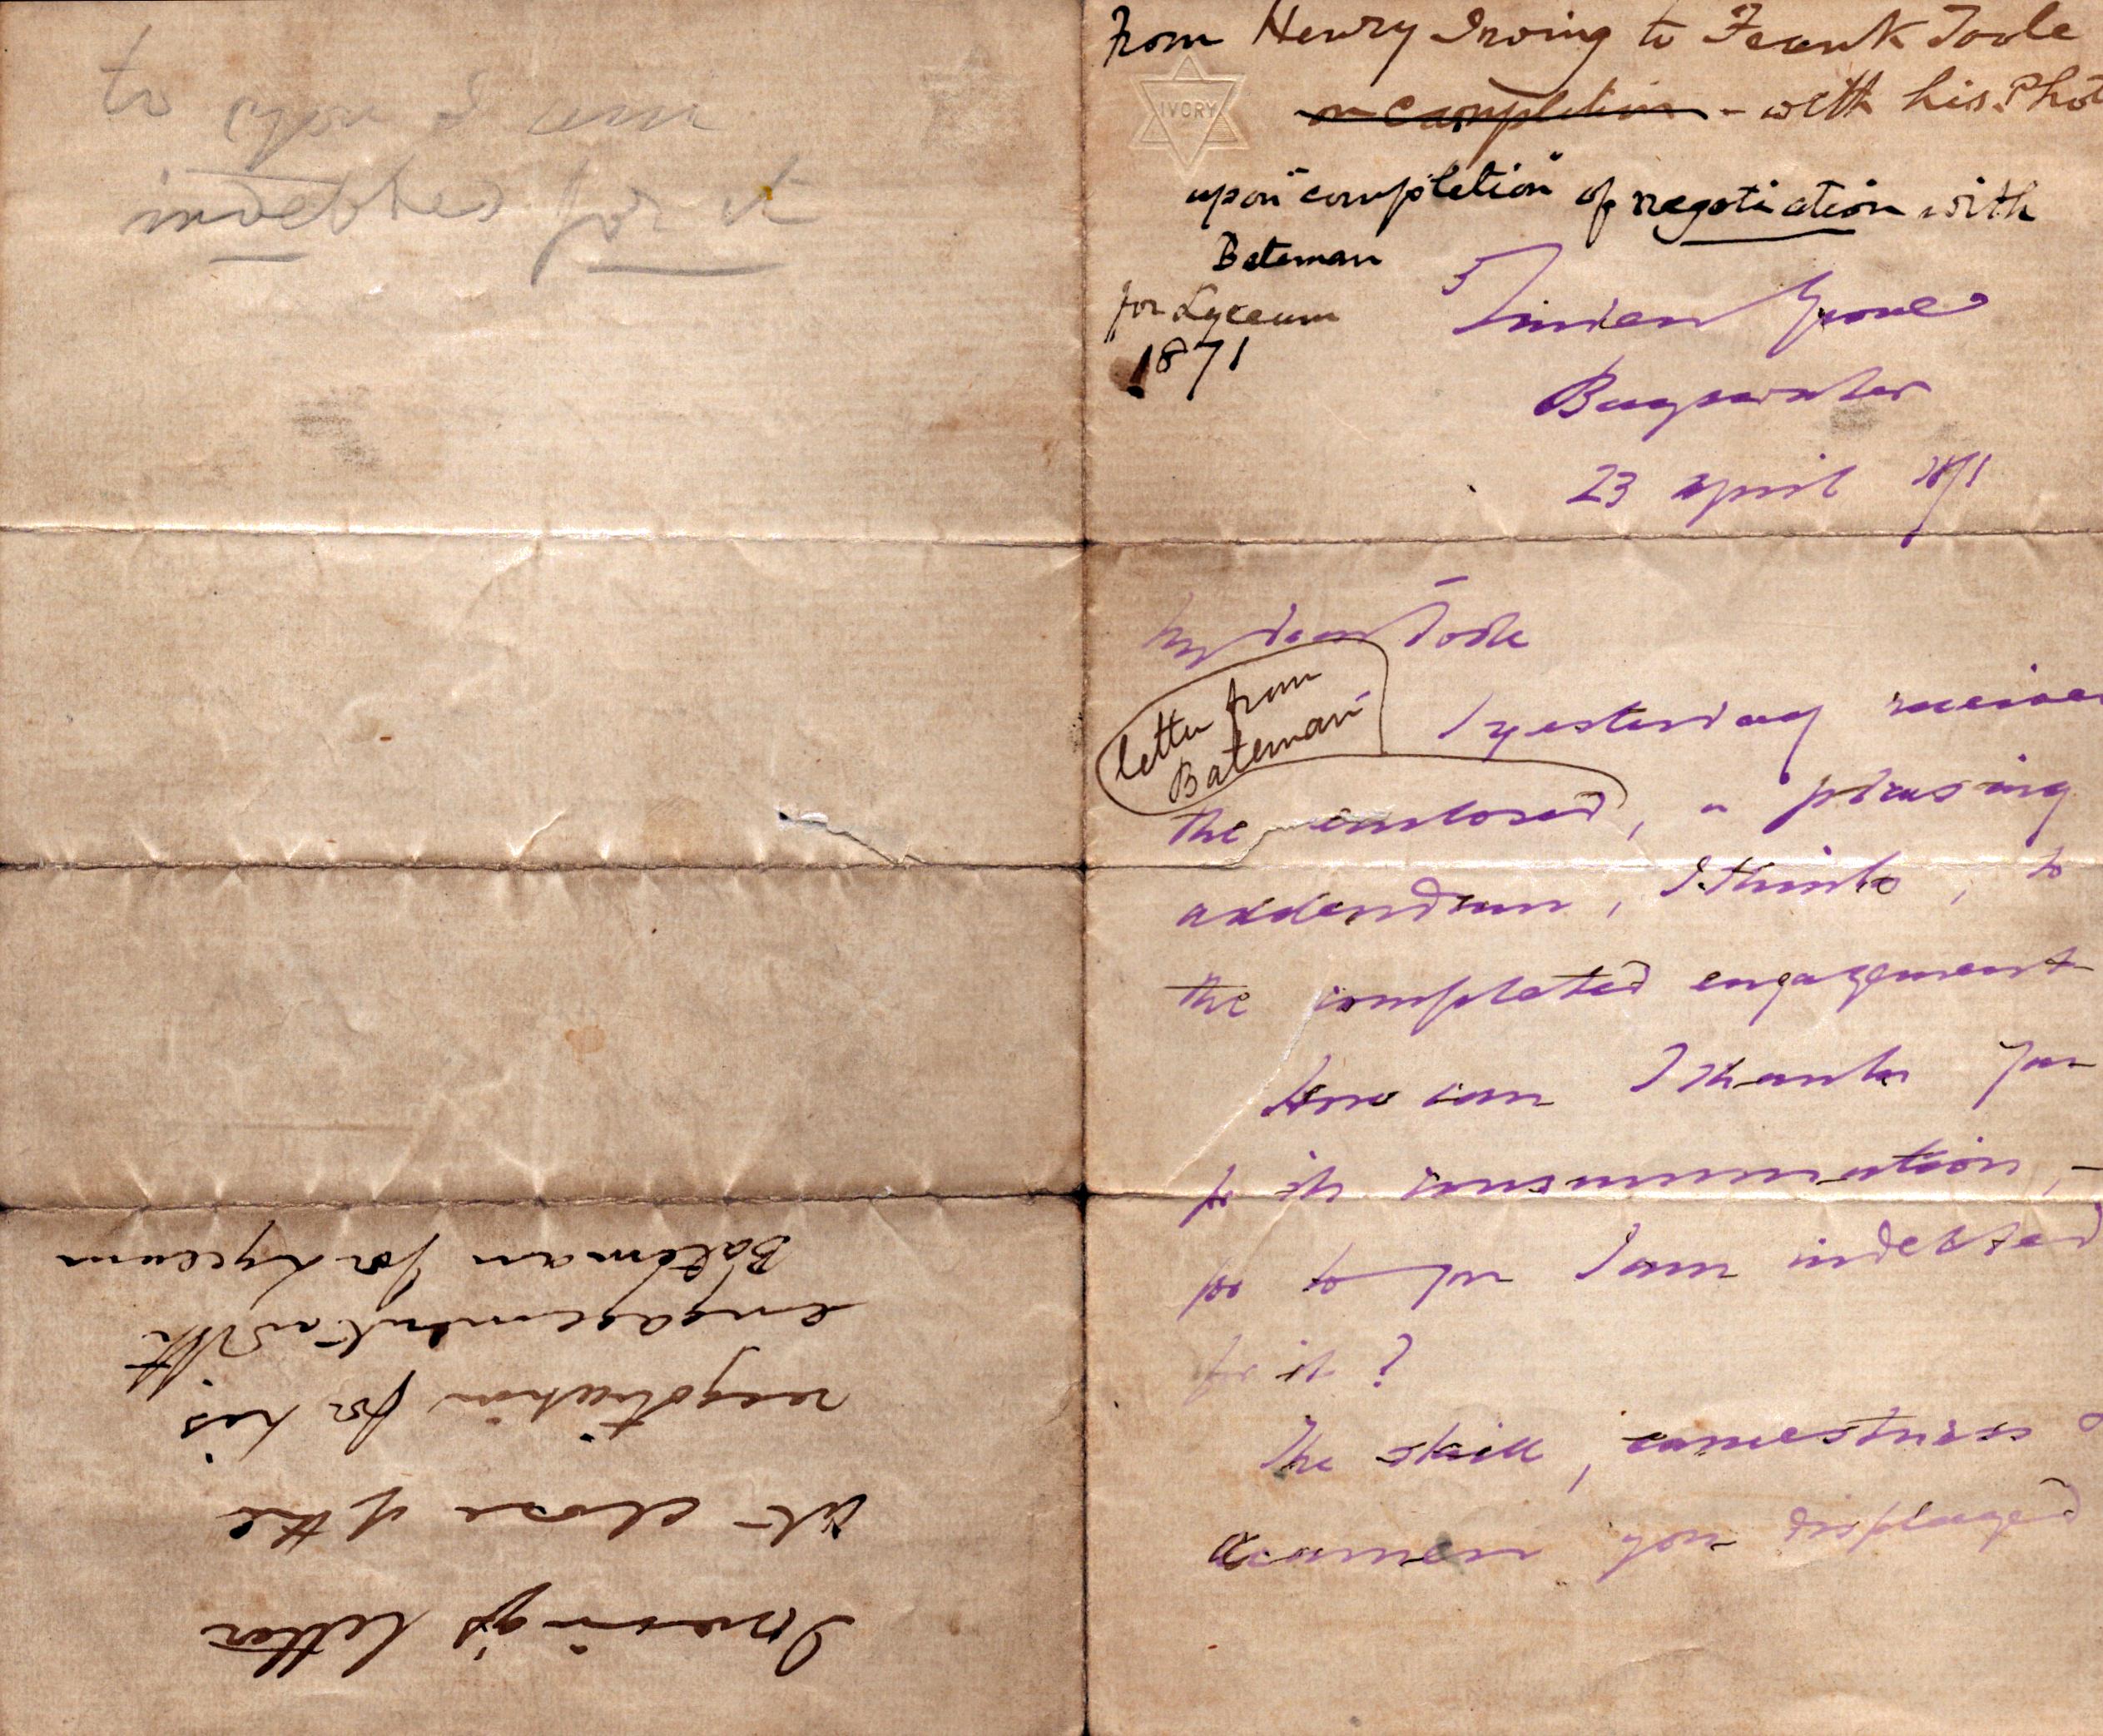 to you I am
indebted for it
Irving's letter
at close of the
negotiation for his
engagement with
Bateman for Lyceum
From Henry Irving to Frank Toole
on completion - with his Phot
IVORY
upon "completion" of negotiation with
Bateman
for Lyceum
1871
5 Linden Grove
Bayswater
23 April 1871
My dear Toole
letter from
Bateman
I yesterday receive
the enclosed, a pleasing
addendum, I think, to
the completed engagement
How can I thank you
for its consummation, -
for to you I am indebted
for it?
The skill, earnestness &
acumen you displayed